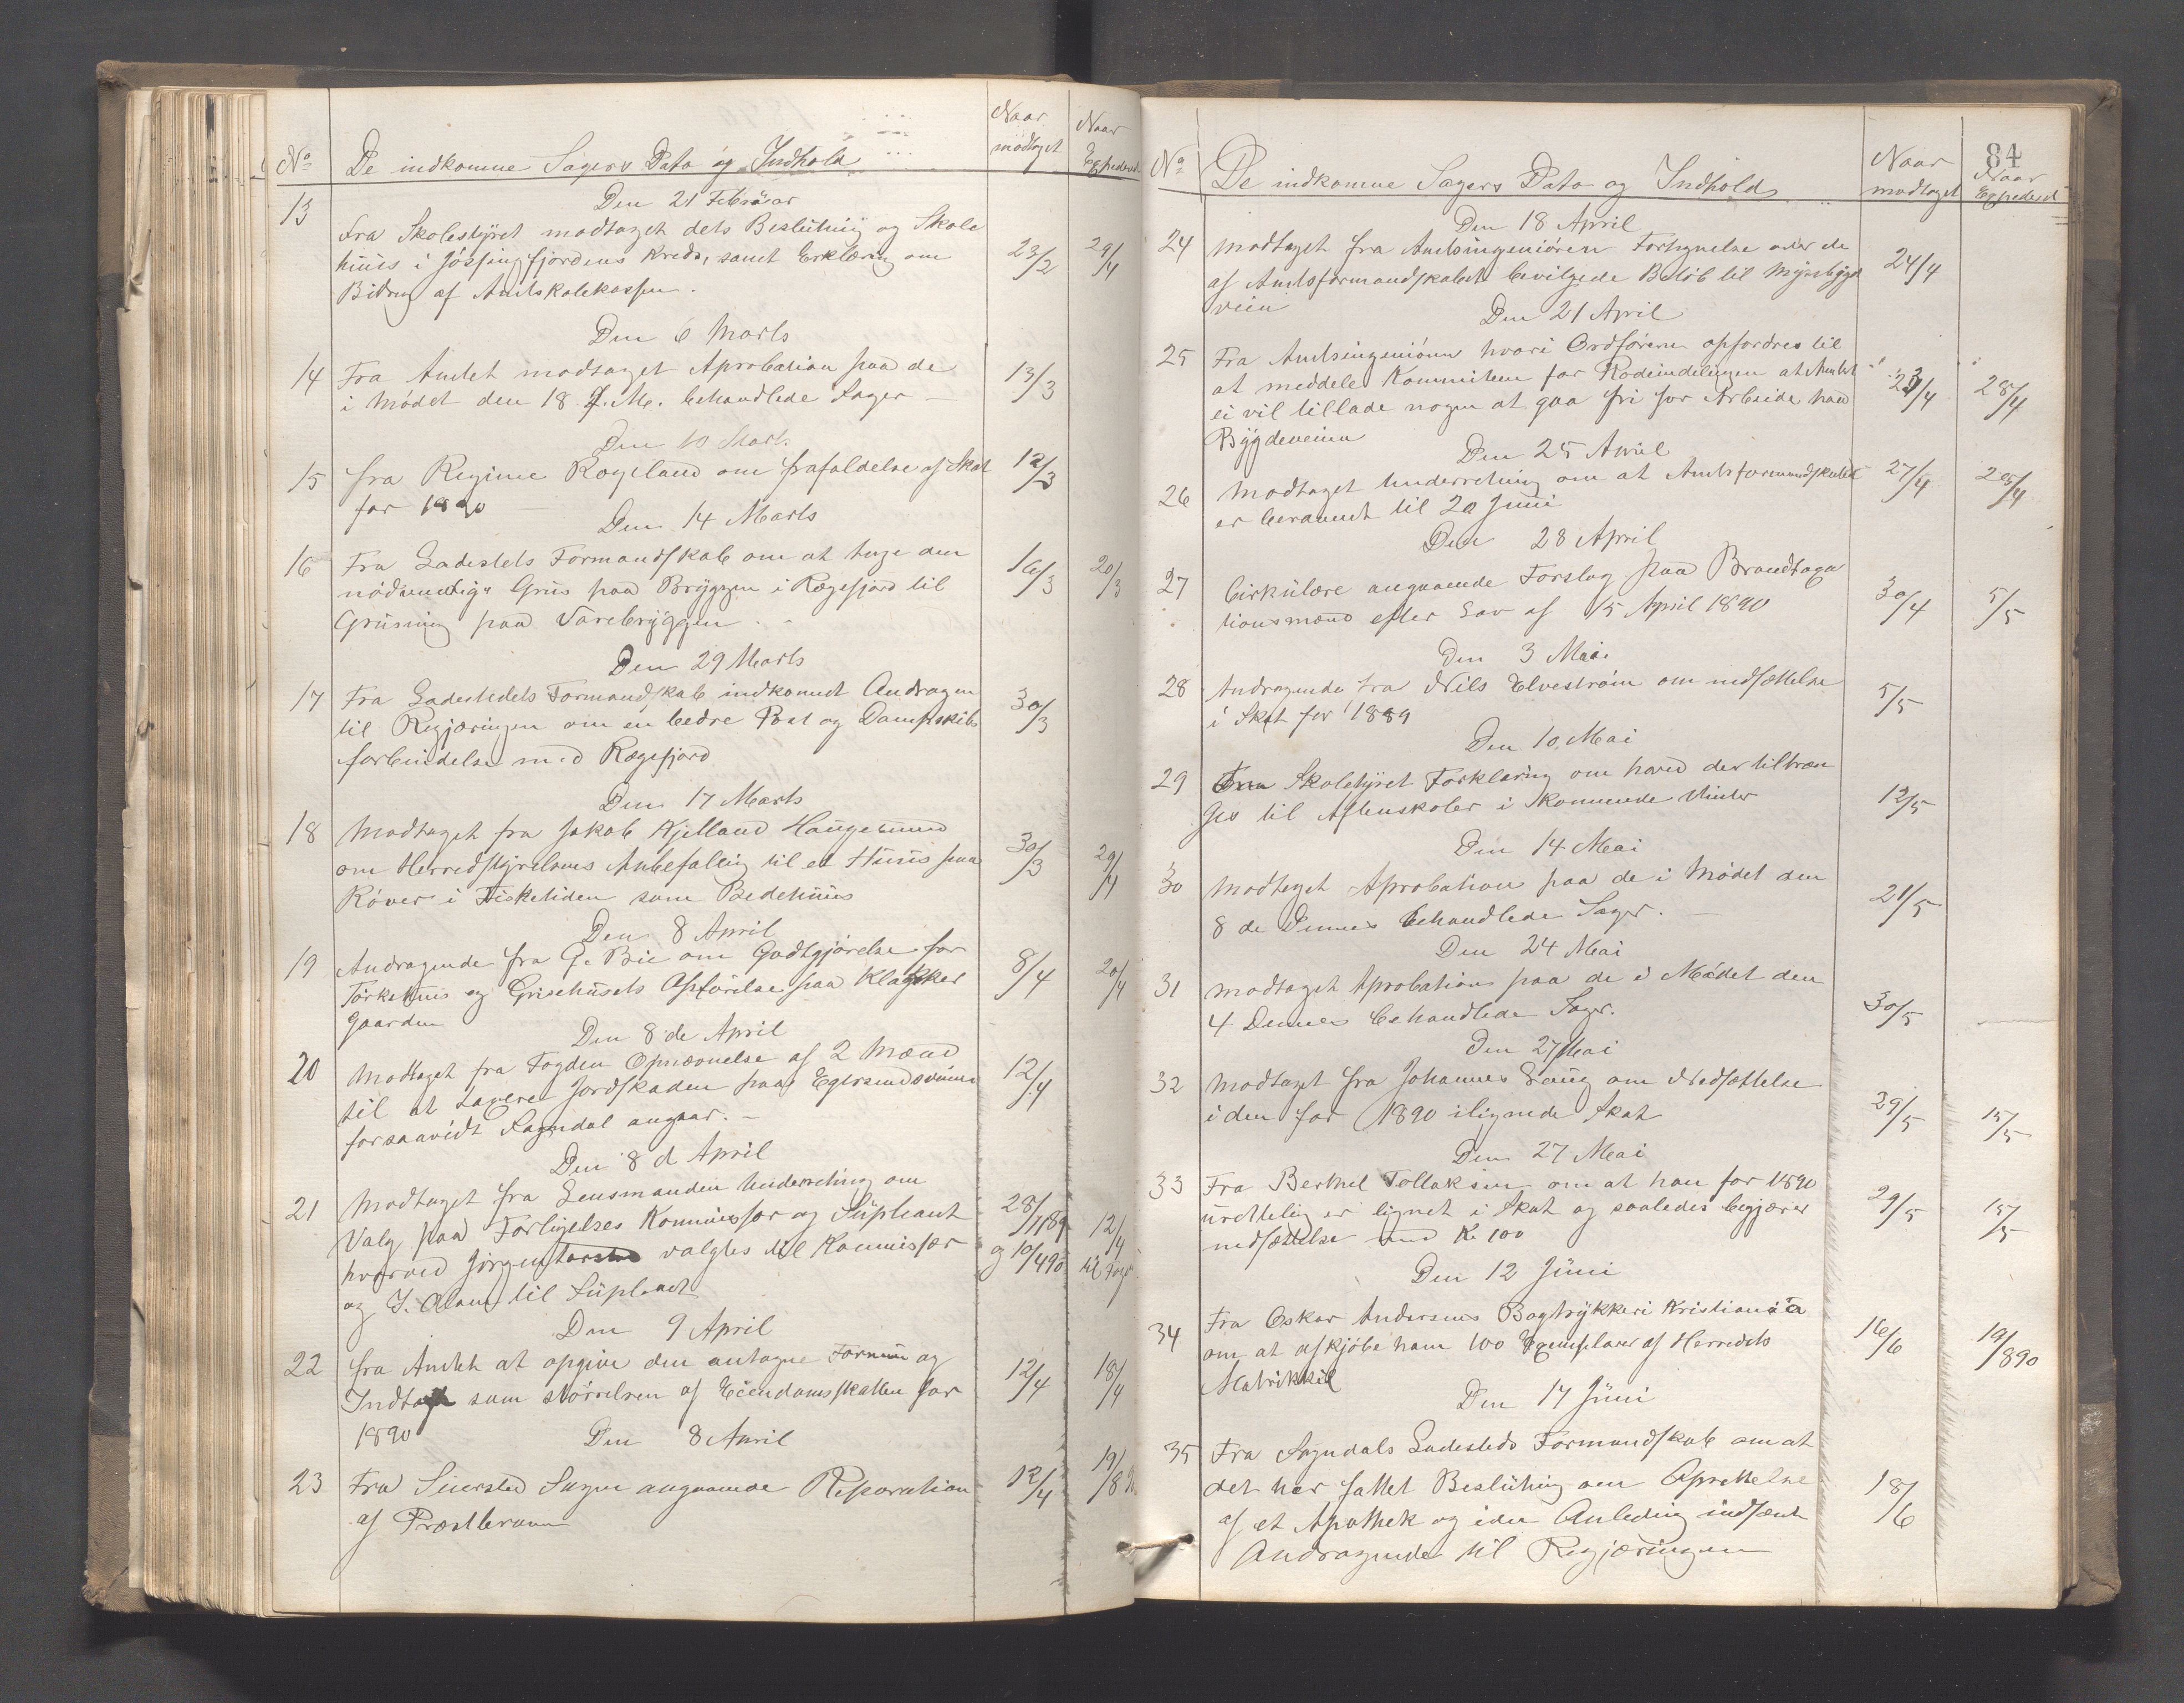 No De indkomne Sagers Dato og Indhold Naar modtaget Naar Expederet
Den 21 Februar
13 Fra Skolestyret modtaget dets Beslutning og Skole
huus i Jøssingfjordens Kreds, samt Erklæring om 23/2 29/4
Bidrag af Amtskolekassen.
Den 6 Marts
14 Fra Amtet modtaget Aprobation paa de 13/3
i Mødet den 18 f. M. behandlede Sager
Den 10 Marts
15 fra Regine Rogeland om frafaldelse af Skat 12/3
for 1890
Den 14 Marts
16 Fra Ladestets Formandskab om at tage den 16/3 20/3
nødvendige Grus paa Bryggen i Rægefjord til
Grusning paa Varebryggen
Den 29 Marts
17 Fra Ladestedets Formandskab indkomet Andragen 30/3
til Regjeringen om en bedre Post og Dampskibs
forbindelse med Rægefjord
Den 17 Marts
18 Modtaget fra Jakob Kjelland Haugesund
om Herredstyrelsens Anbefaling til et Huus paa 30/3 29/4
Røver i Fisketiden som Bedehuus
Den 8 April
19 Andragende fra G. Bie om Godtgjørelse for 8/4 20/4
Tørkehuus og Grisehusets Opførelse paa Klokker
Gaarden
Den 8 de April
20 Modtaget fra Fogden Opnævnelse af 2 Mænd 12/4
til at taxere Jordskaden paa Egersundsveien
forsaavidt Sogndal angaar.
Den 8 d April
21 Modtaget fra Lensmanden Underretning om
Valg paa Forligelses Kommissær og Supleant 28/11 89 12/4
hvorved Jørgen valgtes til Kommissær og 10/4 90 til Fogd
og J. Olsen til Supleant
Den 9 April
22 fra Amtet at opgive den antagne Formue og 12/4 18/4
Indtægt som størrelsen af Eiendomsskatten for
1890
Den 8 April
23 Fra Siersted Sogn angaaende Reparation 12/4
af Præstbroen
84
No De indkomne Sagers Dato og Indhold Naar modtaget Naar Expederet
Den 18 April
24 Modtaget fra Amtsingeniøren Fortegnelse over de 24/4
af Amtsformandskabet bevilgede Beløb til Mysebygd
veien
Den 21 April
25 Fra Amtsingeniøren hvori Ordføreren opfordres til
at meddele Kommiteen for Rodeindelingen at Amtet 23/4 28/4
ei vil tillade nogen at gaa fri for Arbeide paa
Bygdeveien
Den 25 April
26 Modtaget Underretning om at Amtsformandskabet 27/4 28/4
er berammet til 20 Juni
Den 28 April
27 Cirkulære angaaende Forslag paa Brandtaxa 30/4 5/5
tionsmænd efter Lov af 15 April 1890
Den 3 Mai
28 Andragende fra Nils Elvestrøm om nedsættelse 5/5
i Skat for 1889
Den 10 Mai
29 Fra Skolestyret Forklaring om hvad der tiltræn 12/5
ges til Aftenskoler i kommende Vinter
Den 14 Mai
30 Modtaget Aprobation paa de i Mødet den 21/5
8 de Dennes behandlede Sager.
Den 24 Mai
31 Modtaget Aprobation paa de i Mødet den 30/5
4 Dennes behandlede Sager.
Den 27 Mai
32 Modtaget fra Johannes Haug om Nedsættelse 29/5 15/5
i den for 1890 ilignede Skat
Den 27 Mai
33 Fra Berthel Tollaksen om at han for 1890 29/5 15/5
urettelig er lignet i Skat og saaledes begjærer
nedsættelse med Kr 100
Den 12 Juni
34 Fra Oskar Andersens Bogtrykkeri Kristiania 16/6 19/8 90
om at afkjøbe ham 100 Exemplarer af Herredets
Matrikkel
Den 17 Juni
35 Fra Sogndals Ladesteds Formandskab om at
det har fattet Beslutning om Oprettelse 18/6
af et Apothek og i den Anledning indsendt
Andragende til Regjeringen